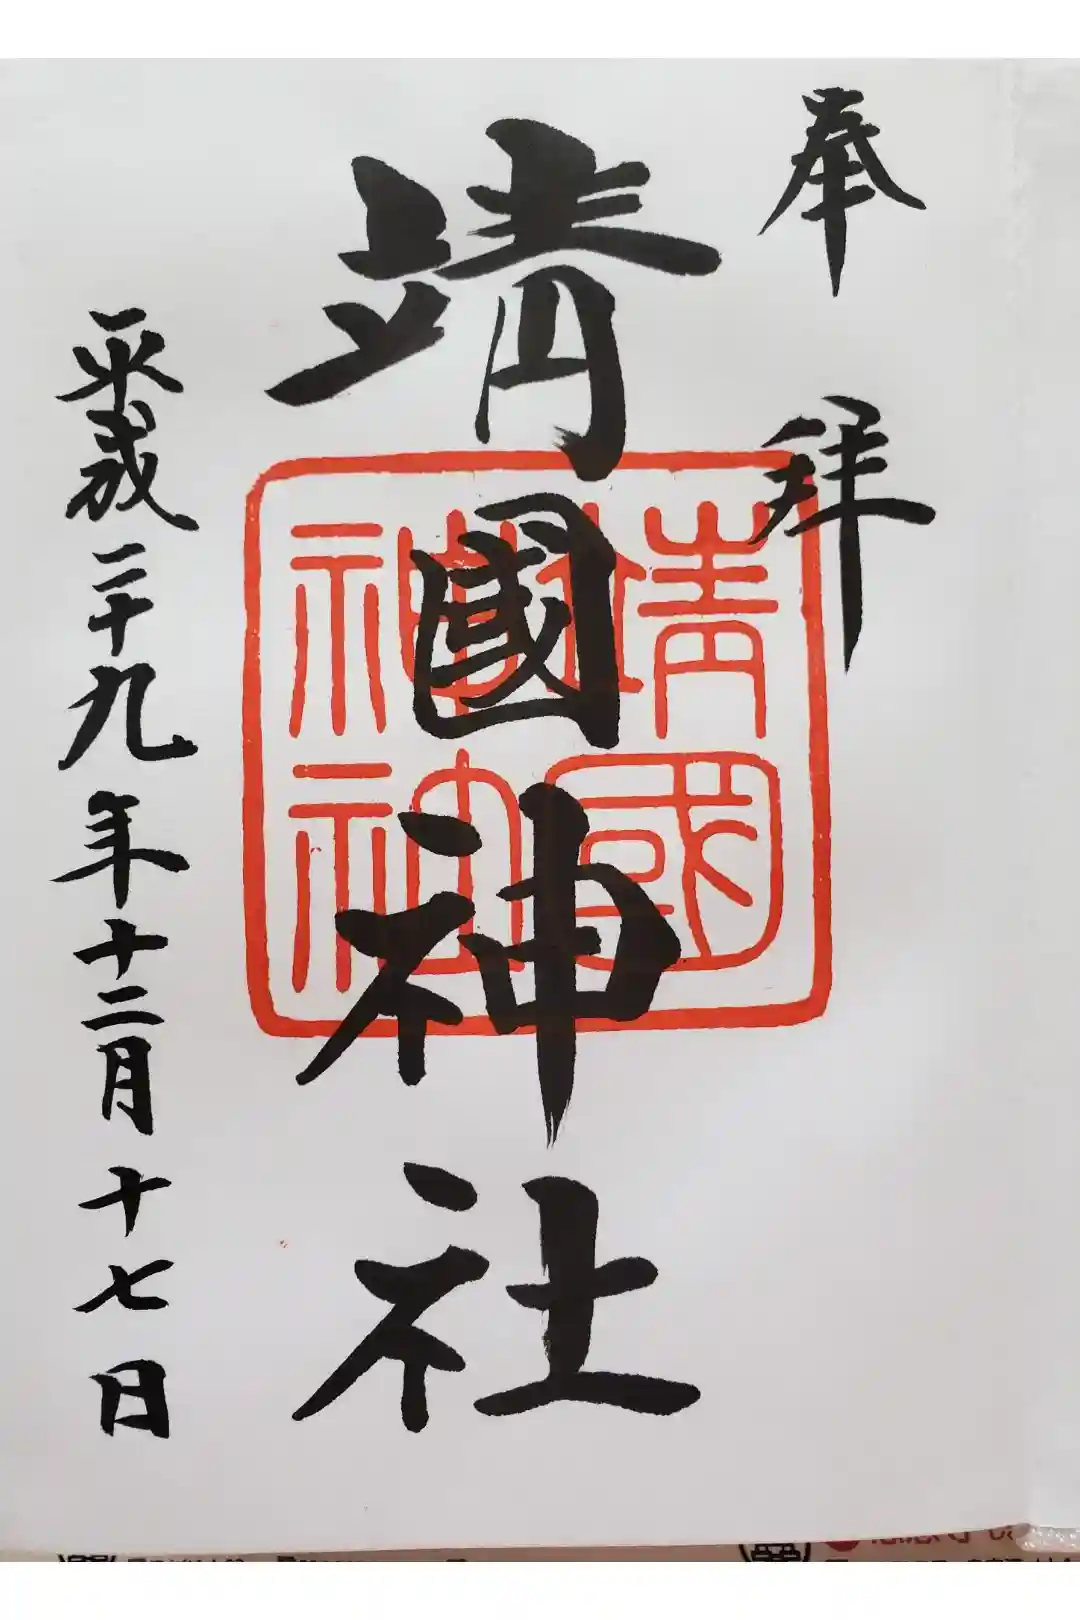 奉拝
靖國神社
靖國
神社
平成二十九年十二月十七日